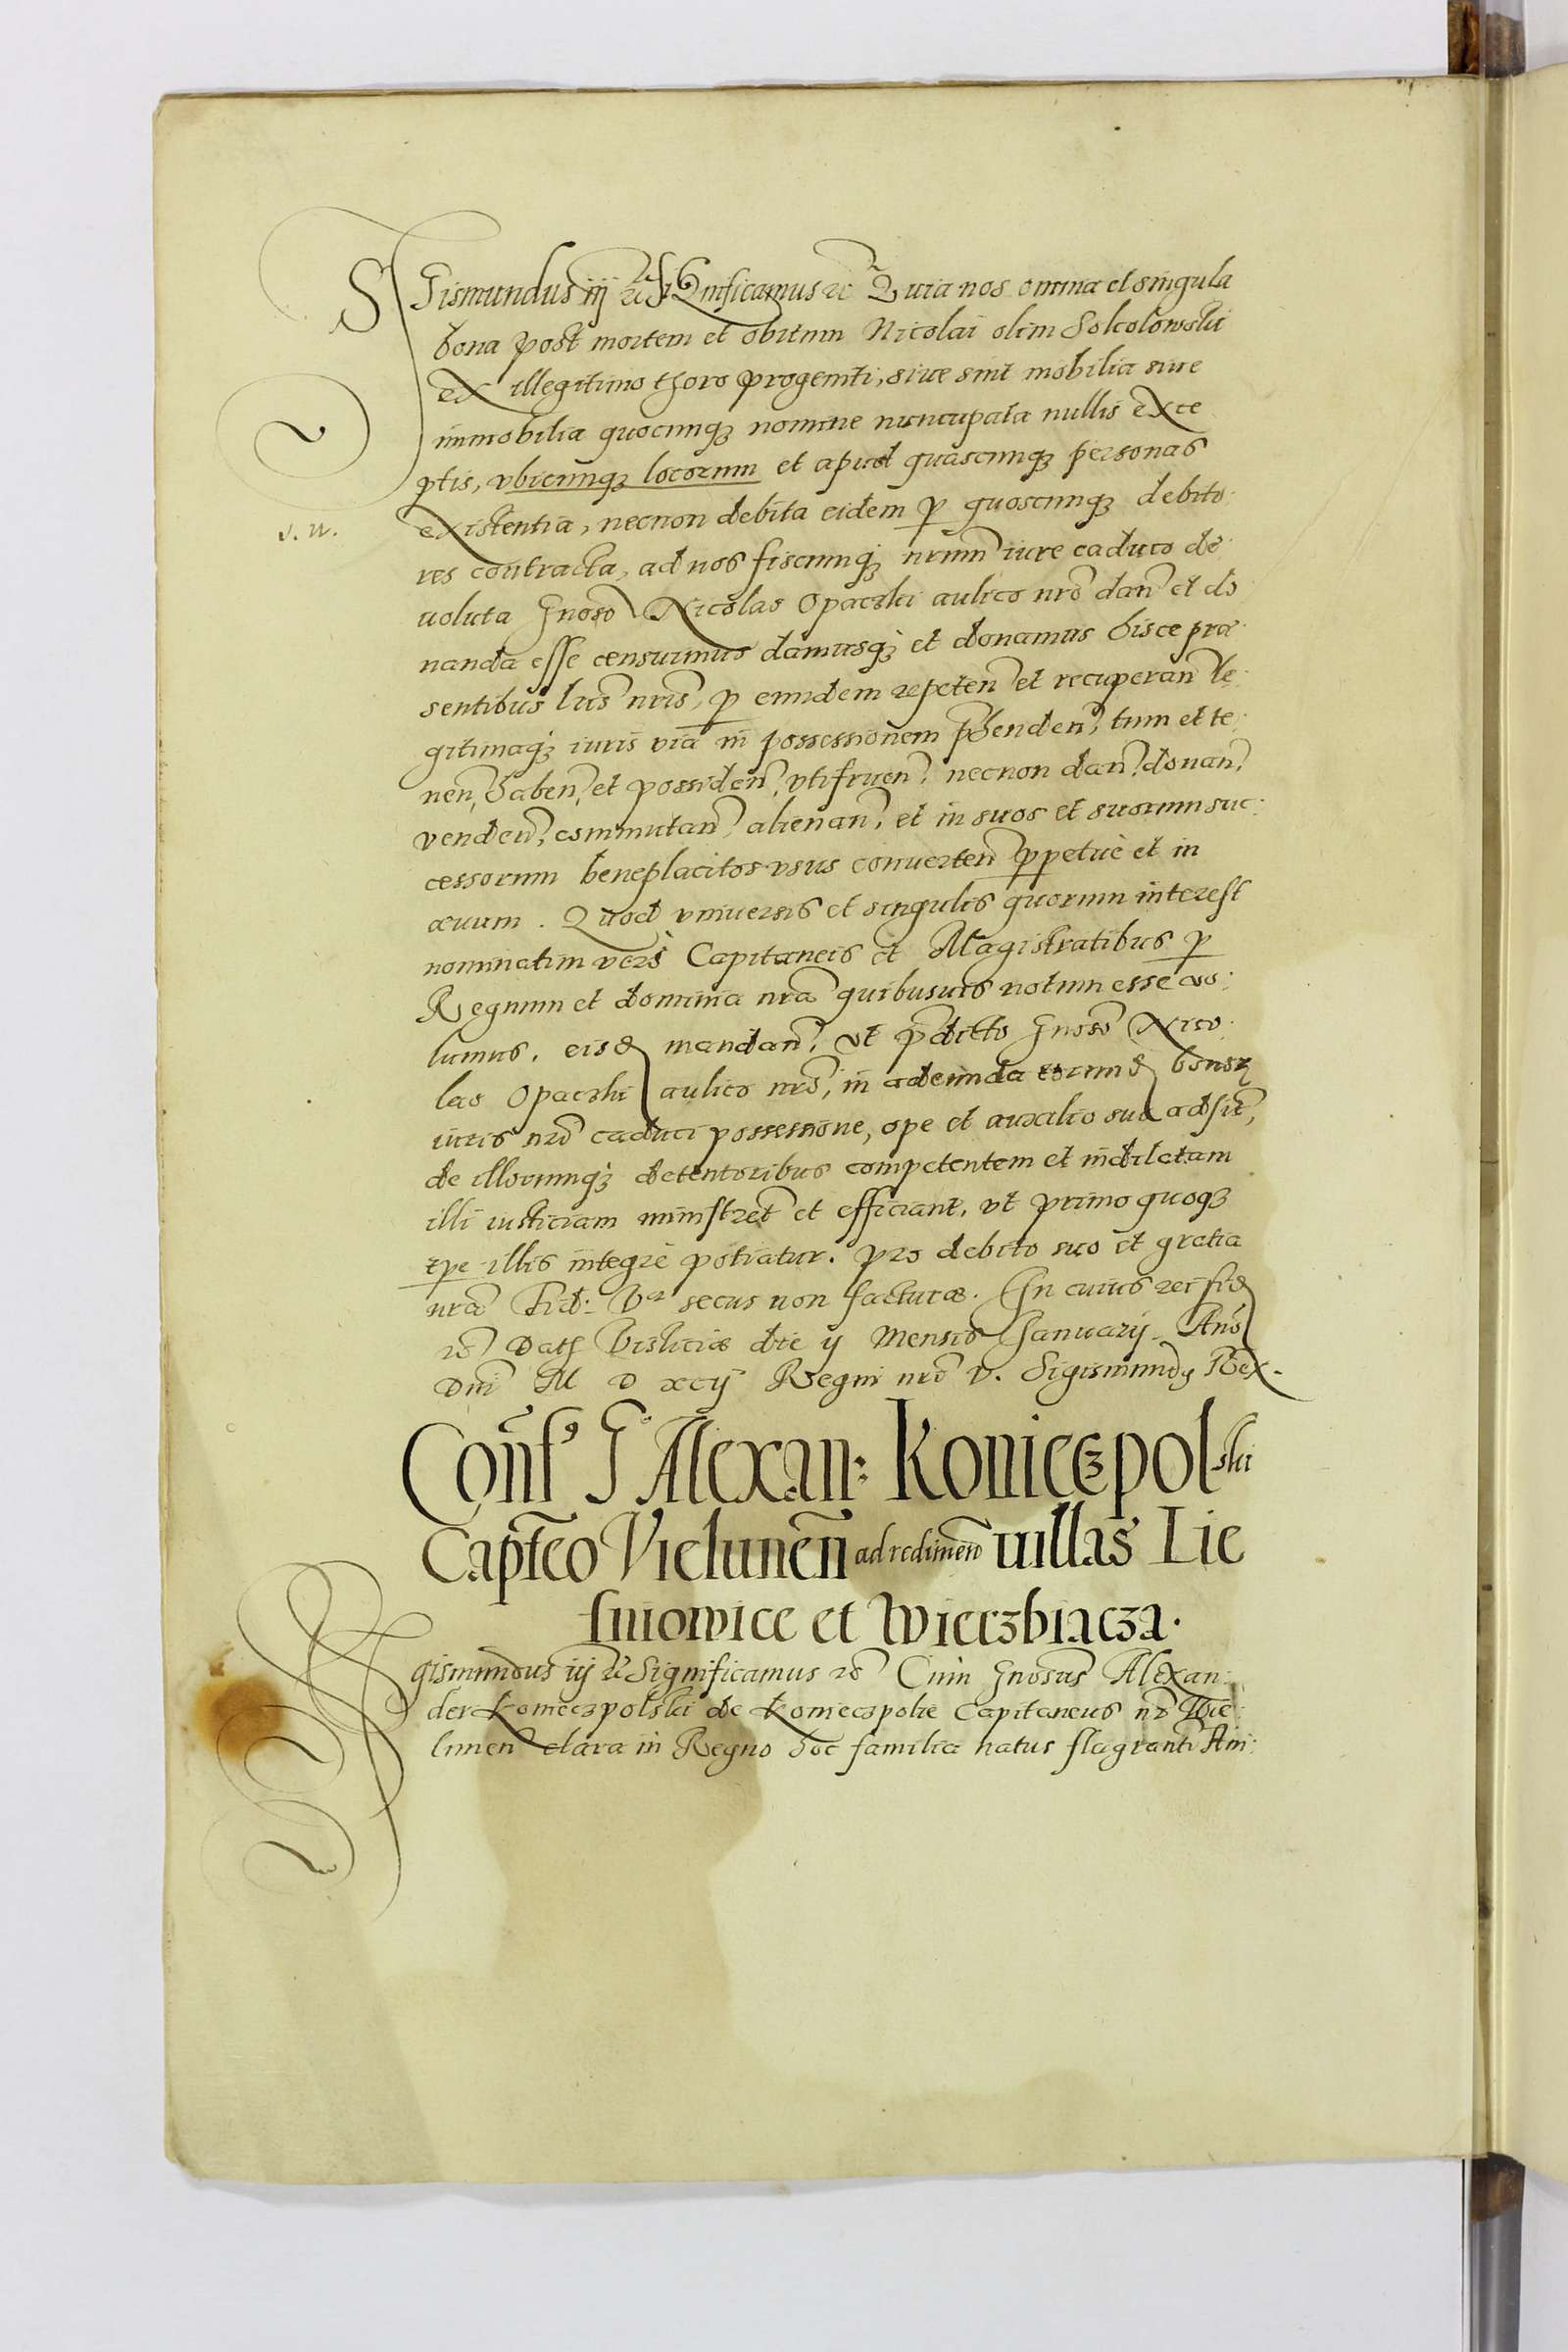 Sigismundus iij etc Significamus etc Quia nos omnia et singula
bona post mortem et obitum Nicolai olim Sokolowski
ex illegitimo thoro progeniti, siue sint mobilia siue
immobilia quocunqꝫ nomine nuncupata nullis exce
ptis, vbicunqꝫ locorum et apud quascunqꝫ personas
existentia, necnon debita eidem ꝑ quoscunqꝫ debito
res contracta, ad nos fiscumqꝫ nrum iure caduco de
uoluta Gnoso Nicolao Opaczki aulico nrõ dan̄ et do
nanda esse censuimus damusqꝫ et donamus hisce præ
sentibus lris nris, ꝑ eundem repeten̄ et recuperan̄ le
gitimaqꝫ iuris via in possessionem p̄henden̄, tum et te
nen̄, haben̄, et possiden̄, vtifruen̄, necnon dan̄, donan̄,
venden̄, commutan̄, alienan̄, et in suos et suorum suc:
cessorum beneplacitos vsus conuerten̄ ꝑpetuè et in
æuum. Quod vniuersis et singulis quorum interest
nominatim verò Capitaneis et Magistratibus ꝑ
Regnum et dominia nra quibusuis notum esse vo:
lumus, eisd mandan̄, vt p̄dicto Gnoso Nico
lao Opaczki aulico nrõ, in adeunda eorund bonoꝝ
iuris nrĩ caduci possessione, ope et auxilio suo adsint,
de illorumqꝫ detentoribus competentem et indilatam
illi iusticiam ministrẽt et efficiant, vt primo quoqꝫ
tpe illis integrè potiatur. pro debito suo et gratia
nra Fid: Vræ secus non facturæ. In cuius rei fid
etc Dat Visliciæ die ij Mensis Januarij Anõ
Dnĩ M D xcij Regni nrĩ v. Sigismundꝰ Rex.
Conſ? G Alexan: Koniecꝫpolski
Capteo Vielunen̄ ad redimen̄ uillas Lie
ſniowice et Wierzbiacza.
Sigismundus iij etc Significamus etc Cum Gnosus Alexan:
der Koniecꝫpolski de Koniecꝫpolie Capitaneus nr̃ Wie:
lunen̄ clara in Regno hoc familia natus flagranti Ani:
J. W.